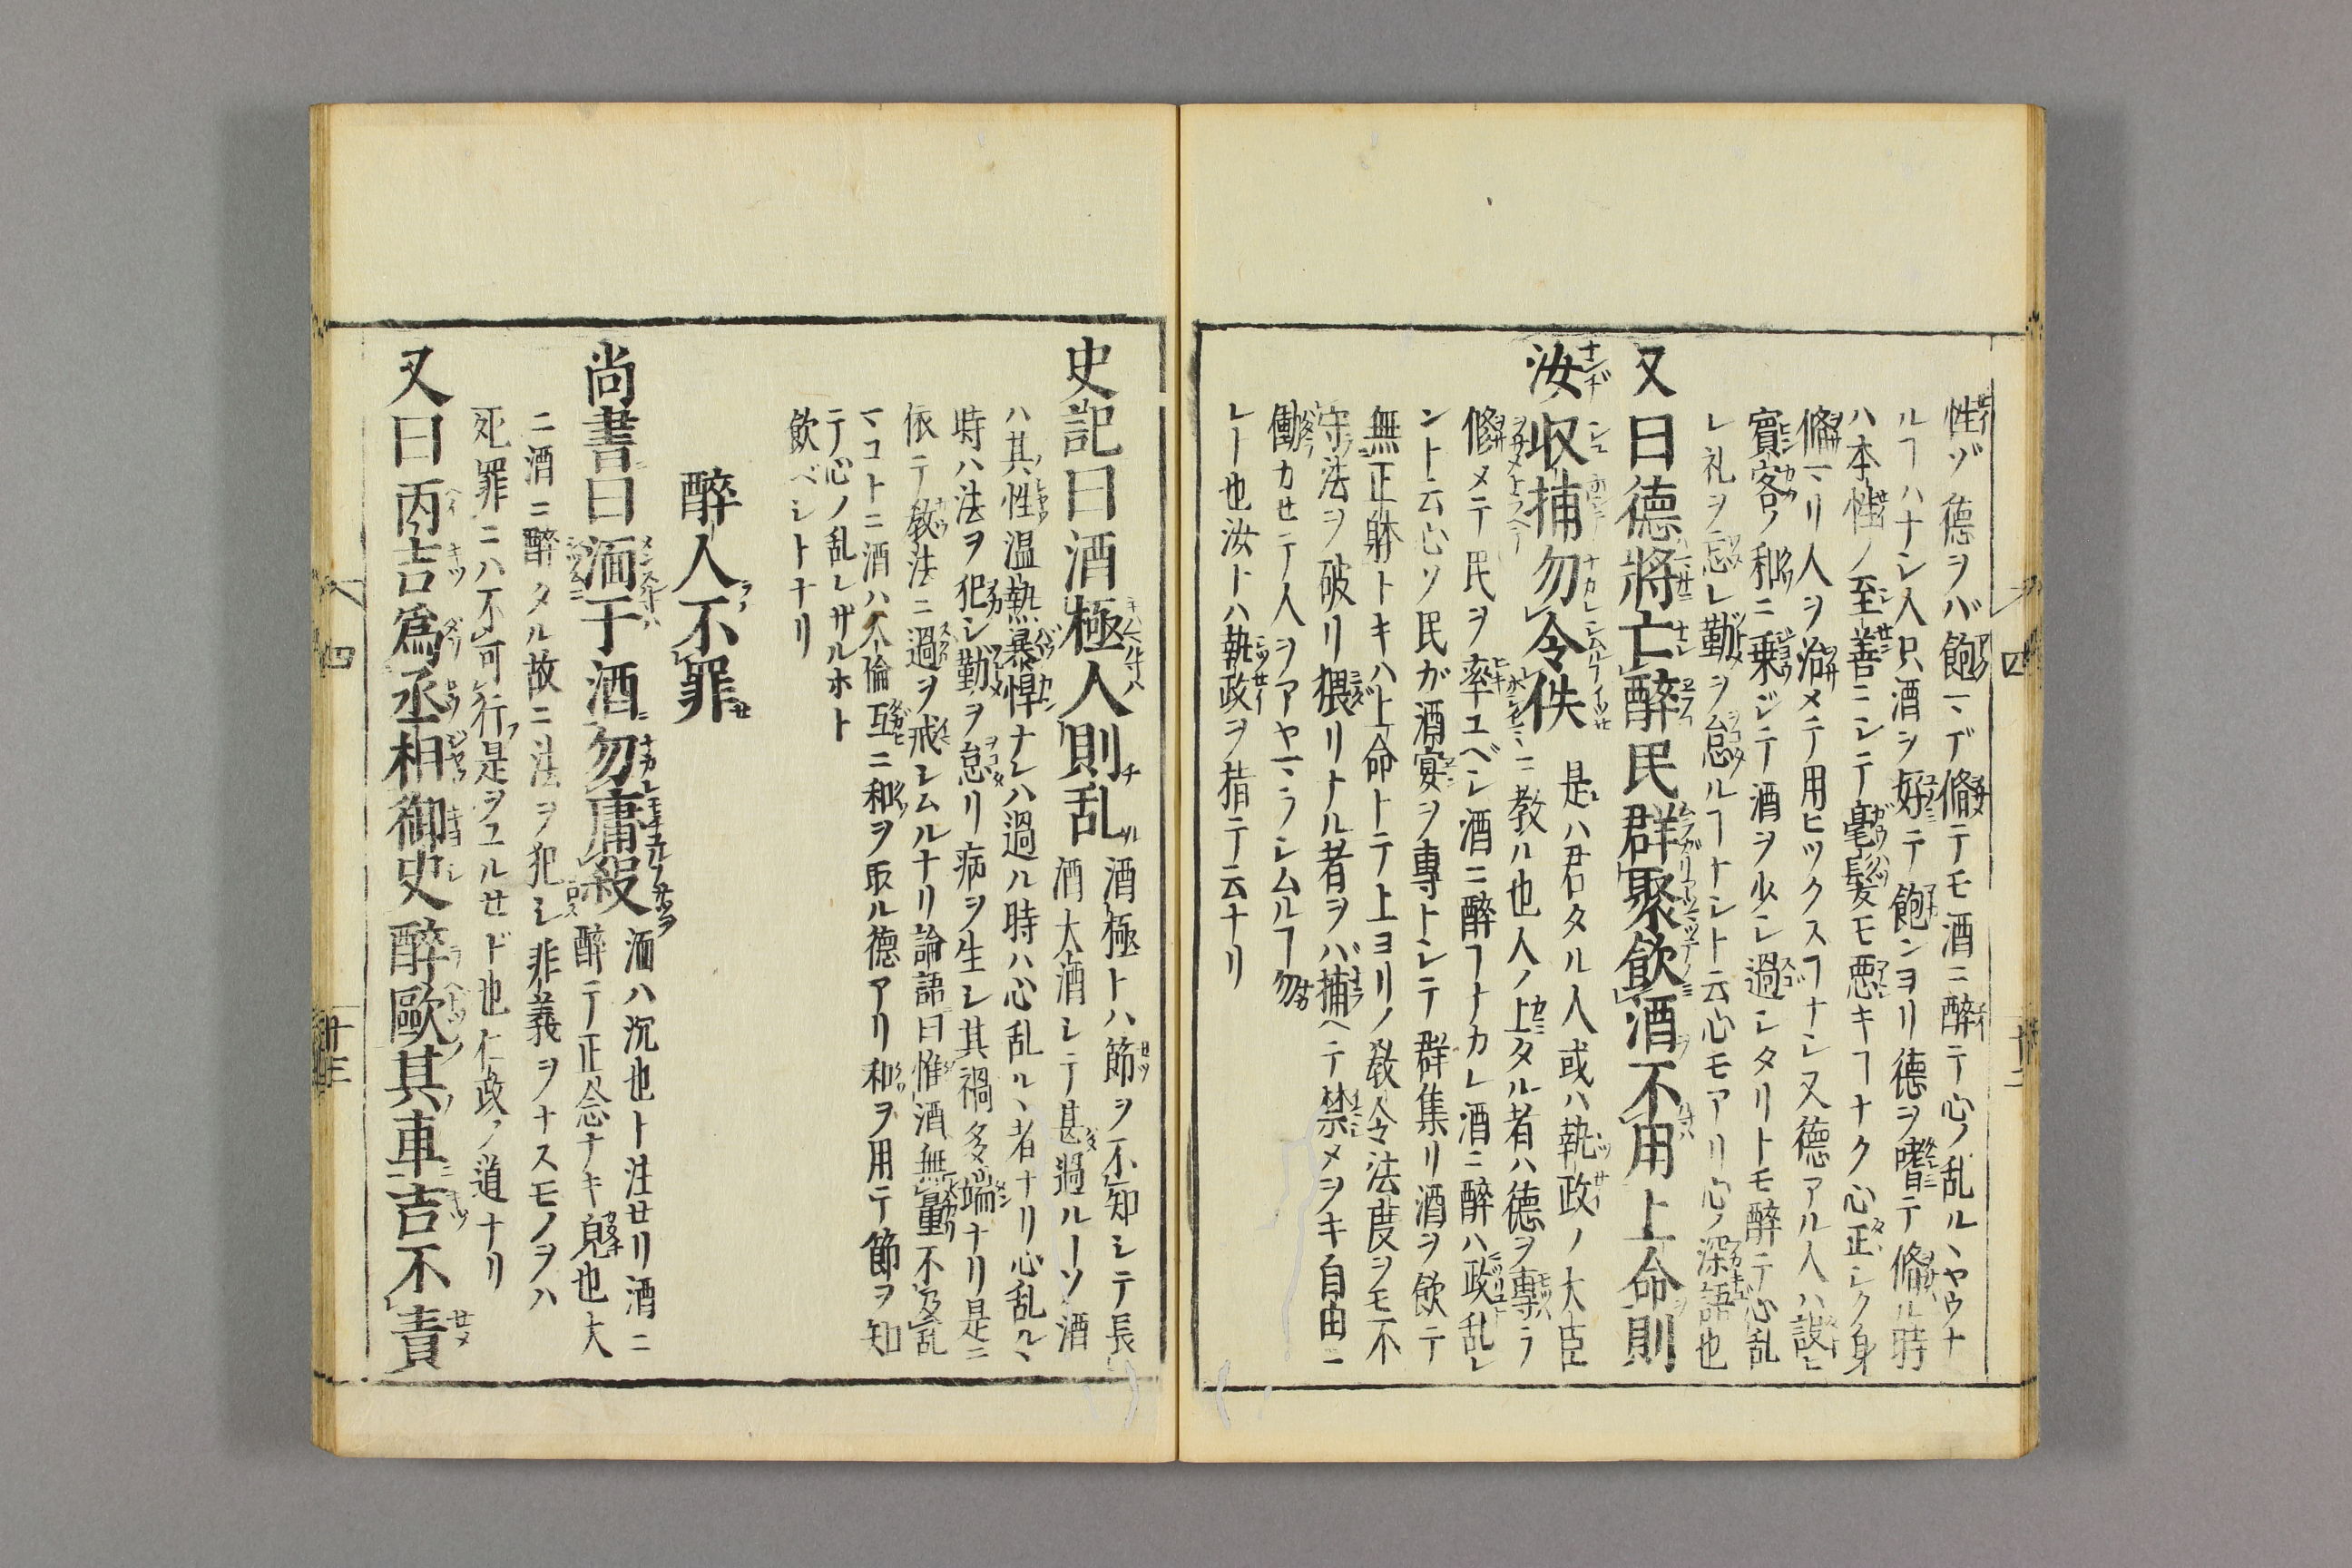 性ゾ德ヲバ飽マデ脩テモ酒ニ醉テ心ノ乱ルヽヤウナ
ルヿハナシ人只酒ヲ好テ飽ンヨリ德ヲ嗜テ脩ル時
ハ本性ノ至善ニシテ毫髮モ悪キヿナク心正シク身
脩マリ人ヲ治メテ用ヒツクスヿナシ又德アル人ハ設ヒ
賓客ノ和ニ乗ジテ酒ヲ少シ過シタリトモ醉テ心乱
レ礼ヲ忘レ勤ヲ怠ルヿナシト云心モアリ心ノ深語也
又曰德將亡醉民群聚飲酒不用上命則
汝収捕勿令佚
是ハ君タル人或ハ執政ノ大臣
ニ教ル也人ノ上タル者ハ德ヲ專ラ
脩メテ民ヲ率ユベシ酒ニ醉ヿナカレ酒ニ醉ハ政乱レ
ント云心ソ民ガ酒宴ヲ專トシテ群集リ酒ヲ飲テ
無正躰トキハ上命トテ上ヨリノ教令法度ヲモ不
守法ヲ破リ猥リナル者ヲバ捕ヘテ禁メヲキ自由ニ
働カセテ人ヲアヤマラシムルヿ勿
レー也汝トハ執政ヲ指テ云ナリ
史記曰酒極人則乱
酒極トハ節ヲ不知シテ長
酒大酒シテ甚過ルーソ酒
ハ其性温熱暴悍ナレハ過ル時ハ心乱ルヽ者ナリ心乱ルヽ
時ハ法ヲ犯シ勤ヲ怠リ病ヲ生シ其禍多端ナリ是ニ
依テ教法ニ過ヲ戒シムルナリ論語曰惟酒無量不及乱
マコトニ酒ハ人倫互ニ和ヲ取ル德アリ和ヲ用テ節ヲ知
テ心ノ乱レザルホト
飲ベシトナリ
醉人不罪
尚書曰湎于酒勿庸殺
湎ハ沉也ト注せリ酒ニ
醉テ正念ナキ皃也大
ニ酒ニ醉タル故ニ法ヲ犯シ非義ヲナスモノヲハ
死罪ニハ不可行是ヲユルせド也仁政ノ道ナリ
又曰丙吉爲丞相御史醉歐其車吉不責